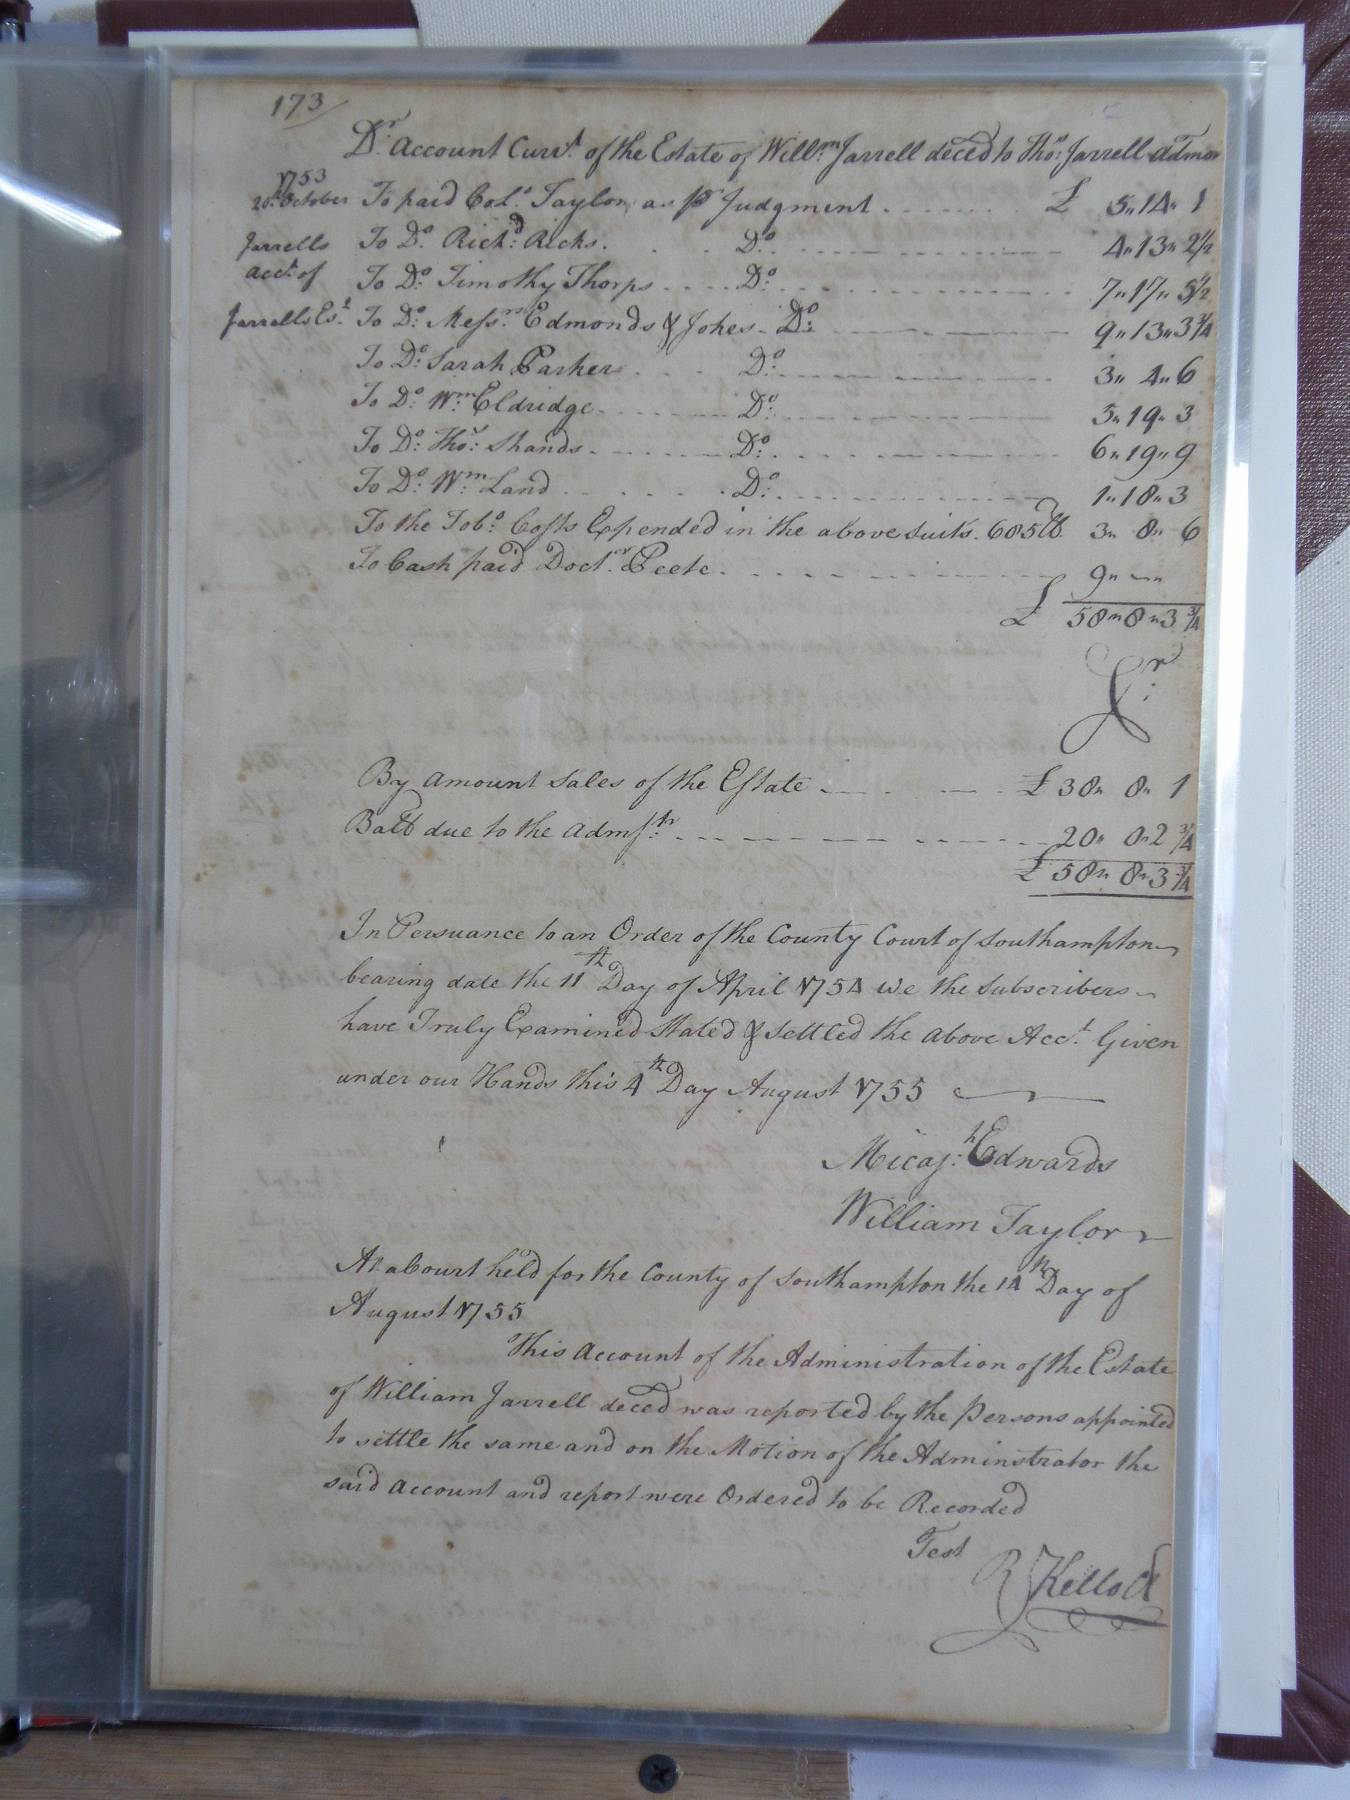 173
Dr. Account Currt. of the Estate of Willm. Jarrell deced to Thos. Jarrell Admor
1753
20th October To paid Colo. Taylor as pr Judgment . . . . . . . £ 5" 14" 1
Jarrells To Do. Richd. Ricks. . . . Do. . . . . . . 4" 13" 2 1/2
acct. of To Do. Timothy Thorps . . . . Do. . . . . . . 7" 17" 5 1/2
Jarrells Est. To Do. Messrs. Edmonds & Jones - Do. . . . . . . 9" 13" 3 3/4
To Do. Sarah Parker . . . . Do. . . . . . . 3" 4" 6
To Do. Wm. Eldridge . . . . Do. . . . . . . 5" 19" 3
To Do. Thos. Shands . . . . Do. . . . . . . 6" 19" 9
To Do. Wm. Land . . . . Do. . . . . . . 1" 18" 3
To the Tobo. Costs Expended in the above suits. 685 lb 3" 8" 6
To Cash paid Doctr. Peete . . . . . . . 9" - " -
£ 58" 8" 3 3/4
Cr.
By amount Sales of the Estate . . . . £ 38" 8" 1
Balle due to the Admstr. . . . . . . 20" 0" 2 3/4
£ 58" 8" 3 3/4
In Persuance to an Order of the County Court of Southampton
bearing date the 11th Day of April 1754 we the Subscribers
have Truly Examined Stated & Settled the above Acct. Given
under our Hands this 4th Day August 1755
Micajh. Edwards
William Taylor
At a Court held for the County of Southampton the 14th Day of
August 1755
This Account of the Administration of the Estate
of William Jarrell deced was reported by the Persons appointed
to settle the same and on the Motion of the Adminstrator the
said Account and report were Ordered to be Recorded
Test
R Kello Cl